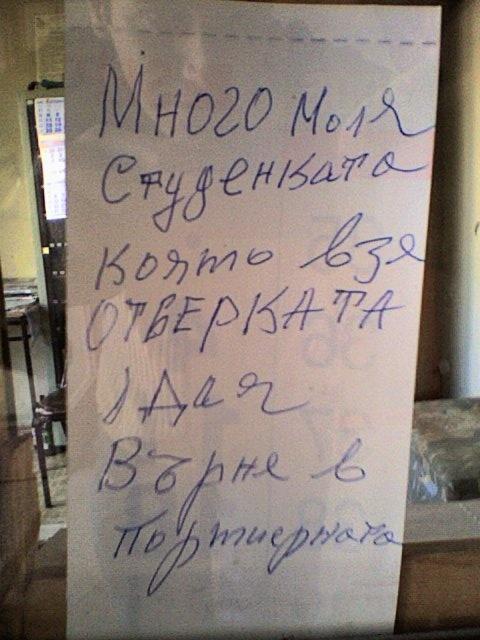 Много моля
Студенката
която взя
ОТВЕРКАТА
, Да я
Върне в
портиерната